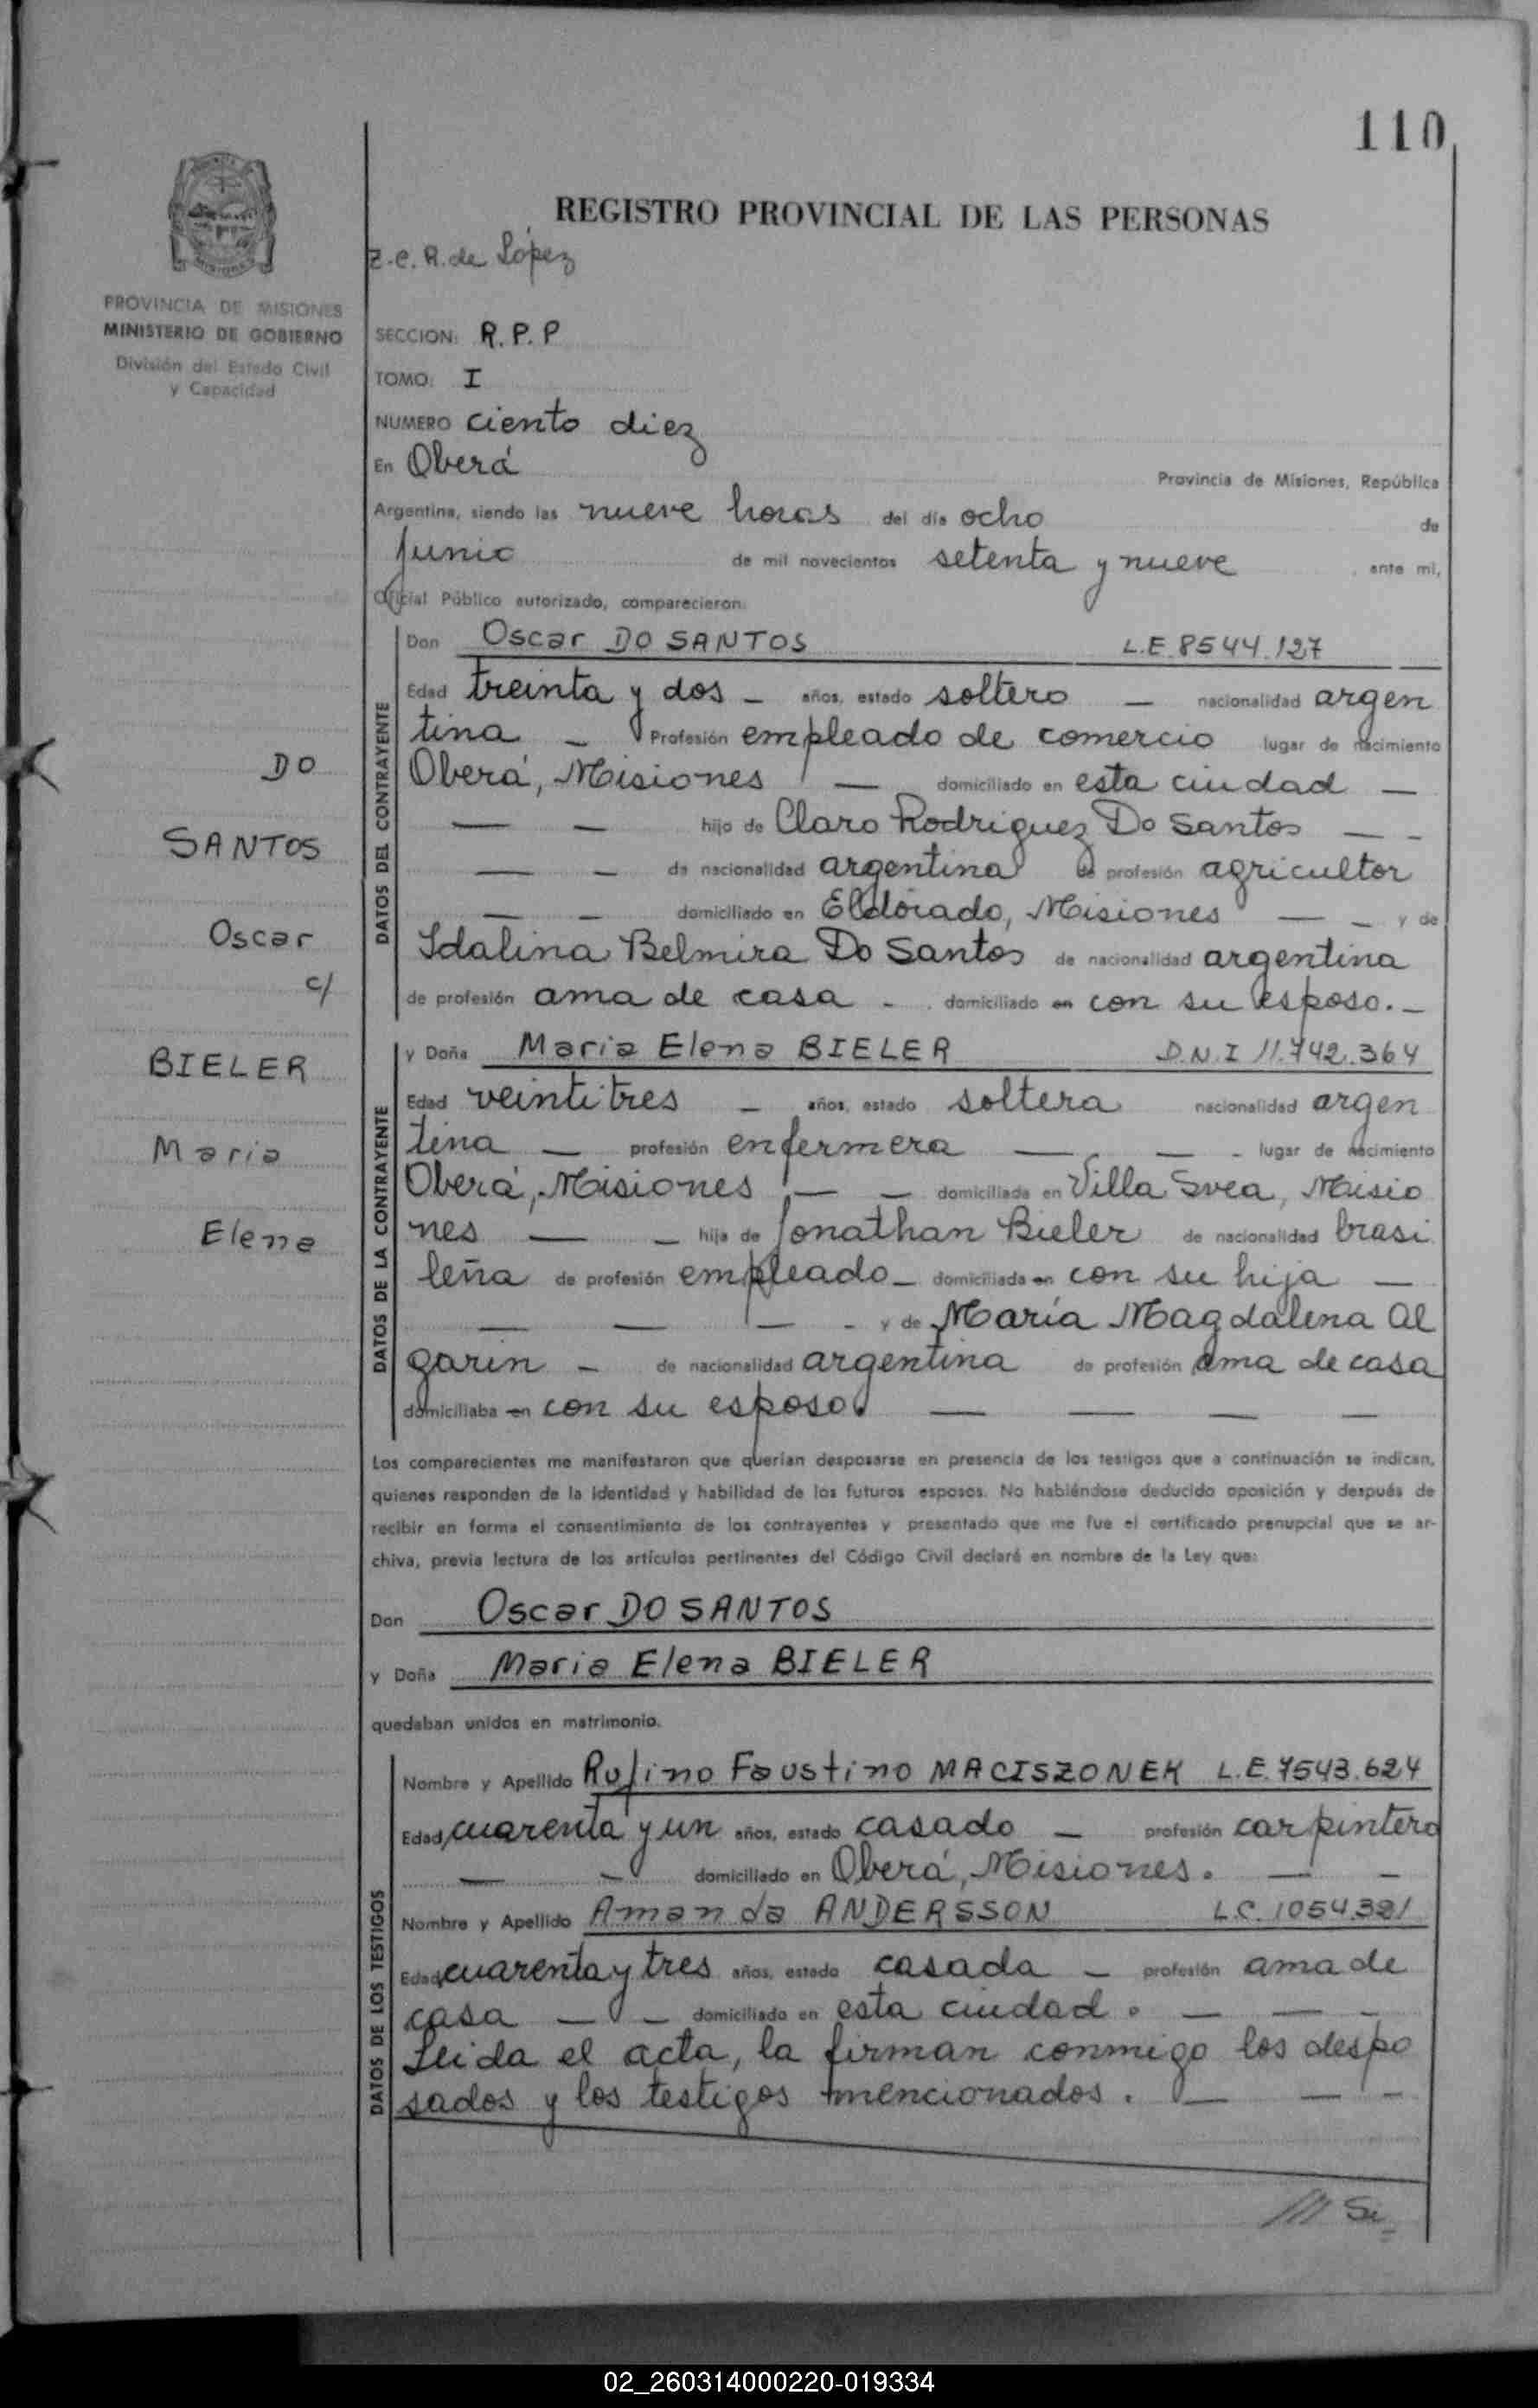 110
MISIONES
PROVINCIA DE MISIONES
MINISTERIO DE GOBIERNO
División del Estado Civil
y Capacidad
DO
SANTOS
Oscar
c/
BIELER
Maria
Elena
REGISTRO PROVINCIAL DE LAS PERSONAS
Z.C.R. de López
SECCION: R.P.P
TOMO: I
NUMERO ciento diez
En Oberá Provincia de Misiones, República
Argentina, siendo las nueve horas del día ocho de
Junio de mil novecientos setenta y nueve ante mí,
Oficial Público autorizado, comparecieron:
DATOS DEL CONTRAYENTE
Don Oscar DO SANTOS L.E. 8544.127
Edad treinta y dos — años, estado soltero — nacionalidad argen
tina — Profesión empleado de comercio lugar de nacimiento
Oberá, Misiones — domiciliado en esta ciudad —
— — hijo de Claro Rodriguez Do Santos — —
— — de nacionalidad argentina de profesión agricultor
— — domiciliado en Eldorado, Misiones — — y de
Idalina Belmira Do Santos de nacionalidad argentina
de profesión ama de casa - domiciliado en con su esposo. —
DATOS DE LA CONTRAYENTE
y Doña Maria Elena BIELER D.N.I 11.742.364
Edad veintitres — años, estado soltera nacionalidad argen
tina — profesión enfermera — — - lugar de nacimiento
Oberá, Misiones — — domiciliada en Villa Svea, Misio
nes — — hija de Jonathan Bieler de nacionalidad brasi
leña de profesión empleado — domiciliada en con su hija —
— — — - y de María Magdalena Al
garin — de nacionalidad argentina de profesión ama de casa
domiciliaba en con su esposo. — — — —
Los comparecientes me manifestaron que querían desposarse en presencia de los testigos que a continuación se indican,
quienes responden de la identidad y habilidad de los futuros esposos. No habiéndose deducido oposición y después de
recibir en forma el consentimiento de los contrayentes y presentado que me fue el certificado prenupcial que se ar-
chiva, previa lectura de los artículos pertinentes del Código Civil declaré en nombre de la Ley que:
Don Oscar DO SANTOS
y Doña Maria Elena BIELER
quedaban unidos en matrimonio.
DATOS DE LOS TESTIGOS
Nombre y Apellido Rufino Faustino MACISZONEK L.E. 7543.624
Edad cuarenta y un años, estado casado — profesión carpintero
— — domiciliado en Oberá, Misiones. — —
Nombre y Apellido Amanda ANDERSSON L.C. 1054321
Edad cuarenta y tres años, estado casada — profesión ama de
casa — — domiciliado en esta ciudad. — — -
Leida el acta, la firman conmigo los despo
sados y los testigos mencionados. — — -
/// Se
02_260314000220-019334